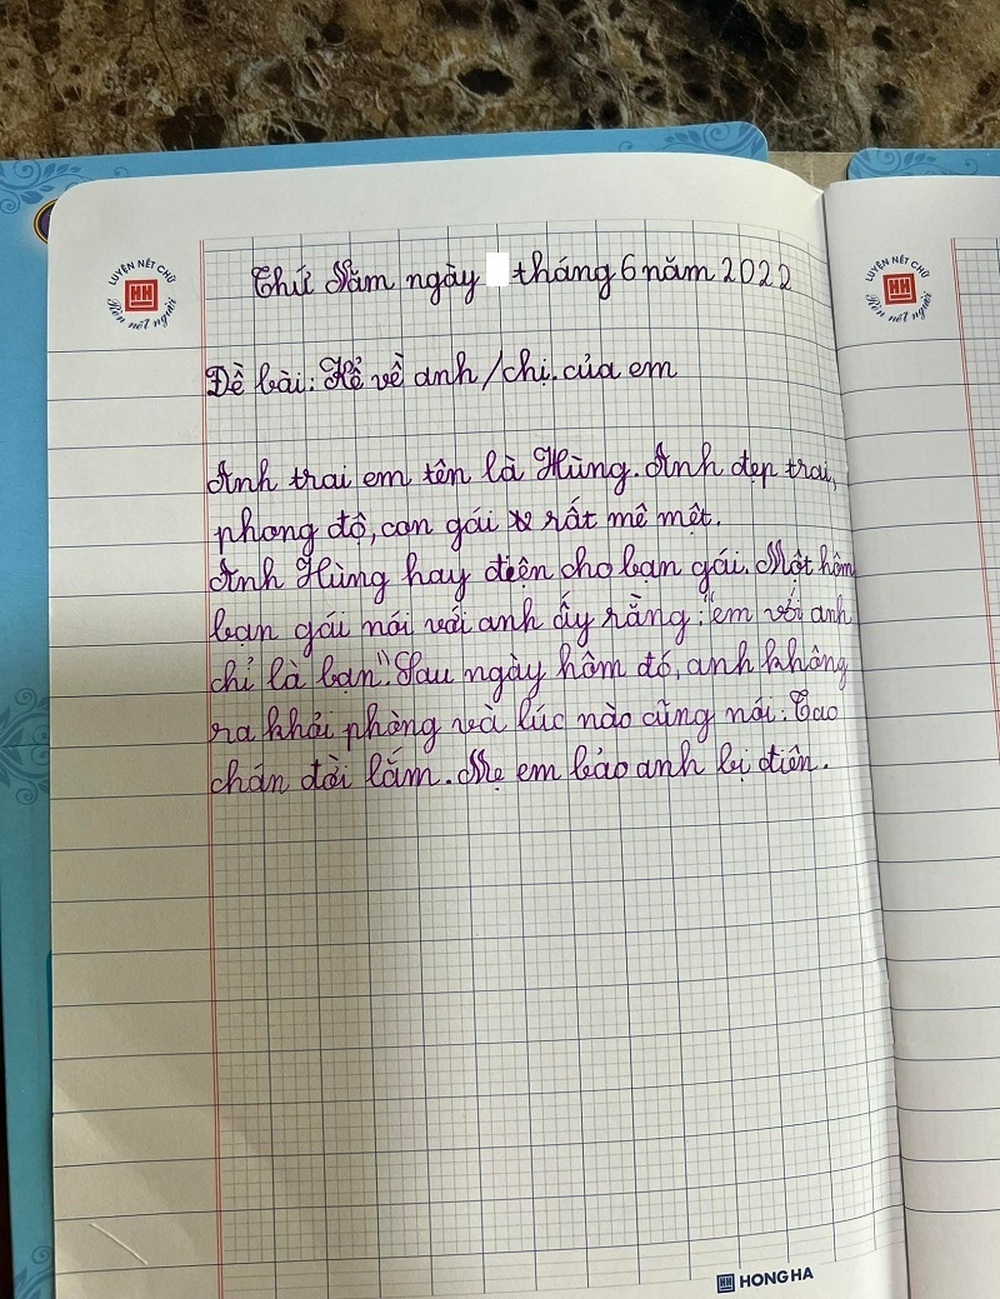 LUYỆN NÉT CHỮ
HH
Rèn nết người
LUYỆN NÉT CHỮ
HH
Rèn nết người
Thứ Năm ngày tháng 6 năm 2022
Đề bài: Kể về anh/chị của em
Anh trai em tên là Hùng. Anh đẹp trai,
phong độ, con gái rất mê mệt.
Anh Hùng hay điện cho bạn gái. Một hôm
bạn gái nói với anh ấy rằng: "em với anh
chỉ là bạn". Sau ngày hôm đó, anh không
ra khỏi phòng và lúc nào cũng nói: Tao
chán đời lắm. Mẹ em bảo anh bị điên.
HH HONG HA